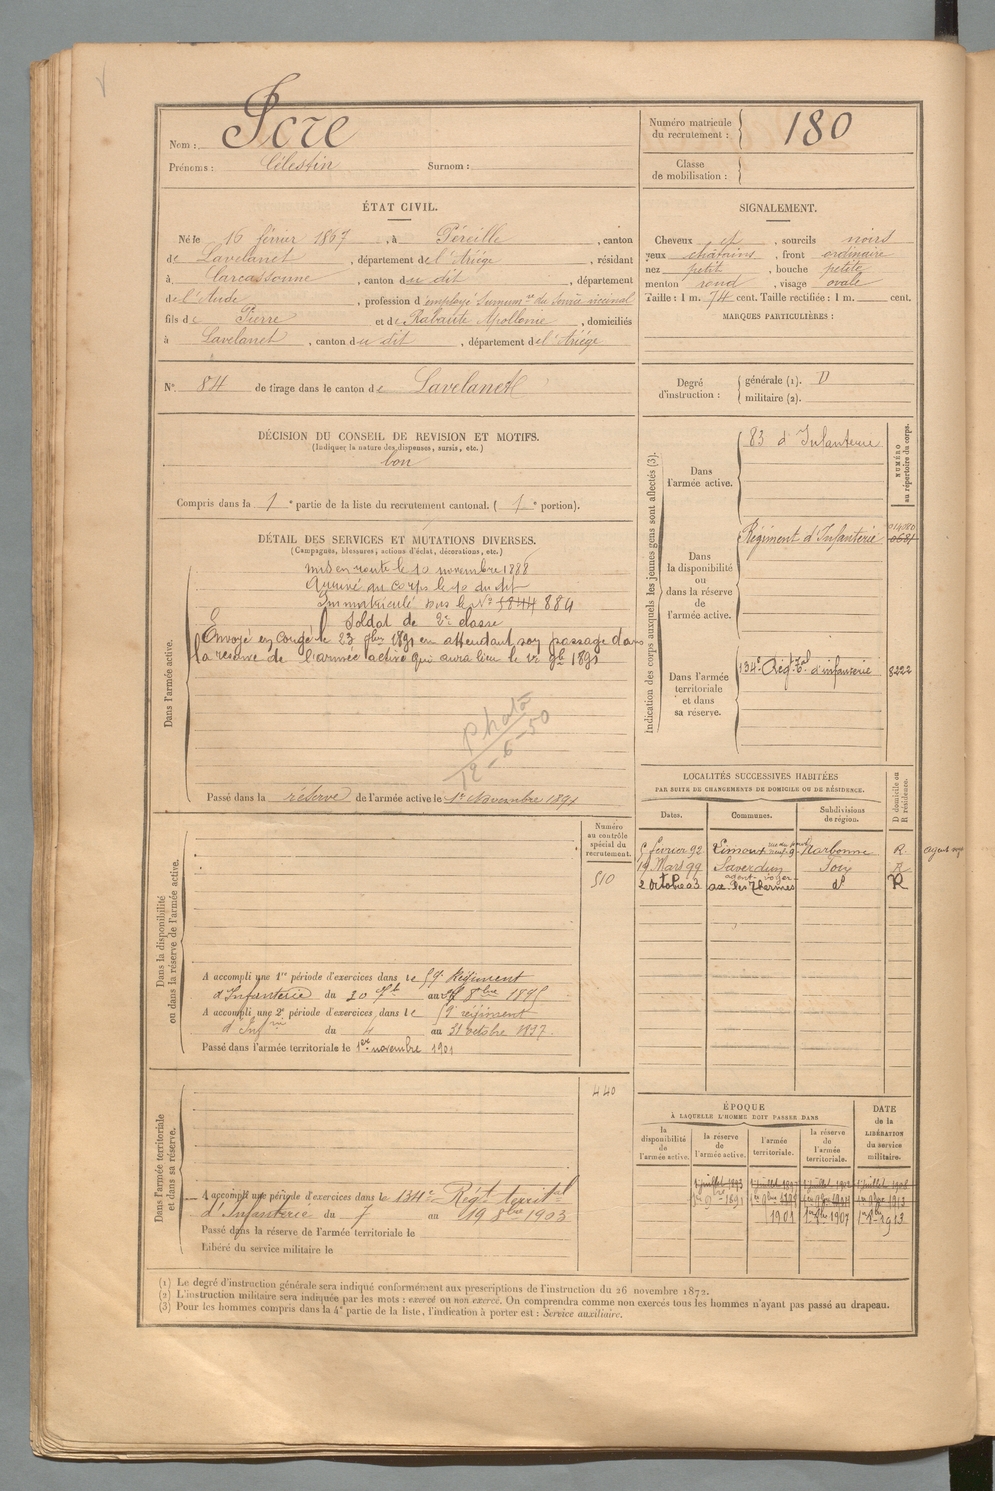 Nom : Icre
Prénoms : Célestin Surnom :
Numéro matricule du recrutement : 180
Classe de mobilisation :
ÉTAT CIVIL.
Né le 16 février 1867, à Péreille, canton
de Lavelanet, département de l'Ariége, résidant
à Carcassonne, canton du dit, département
de l'Aude, profession d'employé du Service vicinal
fils de Pierre et de Rabaute Apollonie, domiciliés
à Lavelanet, canton du dit, département de l'Ariége
N° 84 de tirage dans le canton de Lavelanet
SIGNALEMENT.
Cheveux et, sourcils noirs
yeux chatains, front ordinaire
nez petit, bouche petite
menton rond, visage ovale
Taille : 1 m. 74 cent. Taille rectifiée : 1 m. cent.
MARQUES PARTICULIÈRES :
Degré d'instruction : générale (1).
militaire (2).
DÉCISION DU CONSEIL DE REVISION ET MOTIFS.
(Indiquer la nature des dispenses, sursis, etc.)
bon
Compris dans la 1e partie de la liste du recrutement cantonal. (1e portion).
DÉTAIL DES SERVICES ET MUTATIONS DIVERSES.
(Campagnes, blessures, actions d'éclat, décorations, etc.)
Dans l'armée active.
Mis en route le 10 novembre 1888
Arrivé au corps le 10 du dit
Immatriculé sous le N° 5844 884
Soldat de 2e classe
Envoyé en congé le 23 7bre 1891 en attendant son passage dans
la réserve de l'armée active qui aura lieu le 1er 9b 1891
photo
12-6-50
Passé dans la réserve de l'armée active le 1er Novembre 1891
Indication des corps auxquels les jeunes gens sont affectés (3).
NUMÉRO au répertoire du corps.
Dans l'armée active.
83 d'Infanterie
Dans la disponibilité ou dans la réserve de l'armée active.
Régiment d'Infanterie
Dans l'armée territoriale et dans sa réserve.
134e Régt Tal d'infanterie 8222
LOCALITÉS SUCCESSIVES HABITÉES
PAR SUITE DE CHANGEMENTS DE DOMICILE OU DE RÉSIDENCE.
D domicile ou R résidence.
Dates. Communes. Subdivisions de région.
5 février 92 Limoux Narbonne R agent
19 Mars 99 Saverdun Foix R
agent voyer
2 Octobre 03 ax-les-Thermes do R
Numéro au contrôle spécial du recrutement.
510
Dans la disponibilité ou dans la réserve de l'armée active.
A accompli une 1re période d'exercices dans le 59e Régiment
d'Infanterie du 20 7bre au 17 8bre 1895
A accompli une 2e période d'exercices dans le 59e régiment
d'Infrie du 4 au 31 octobre 1897
Passé dans l'armée territoriale le 1er novembre 1901
Dans l'armée territoriale et dans sa réserve.
440
A accompli une période d'exercices dans le 134e Régt territal
d'Infanterie du 7 au 19 8bre 1903
Passé dans la réserve de l'armée territoriale le
Libéré du service militaire le
ÉPOQUE
À LAQUELLE L'HOMME DOIT PASSER DANS
DATE de la LIBÉRATION du service militaire.
la disponibilité de l'armée active. la réserve de l'armée active. l'armée territoriale. la réserve de l'armée territoriale.
1er 9bre 1891
1901 1er 9bre 1907 1er 9bre 1913
(1) Le degré d'instruction générale sera indiqué conformément aux prescriptions de l'instruction du 26 novembre 1872.
(2) L'instruction militaire sera indiquée par les mots : exercé ou non exercé. On comprendra comme non exercés tous les hommes n'ayant pas passé au drapeau.
(3) Pour les hommes compris dans la 4e partie de la liste, l'indication à porter est : Service auxiliaire.